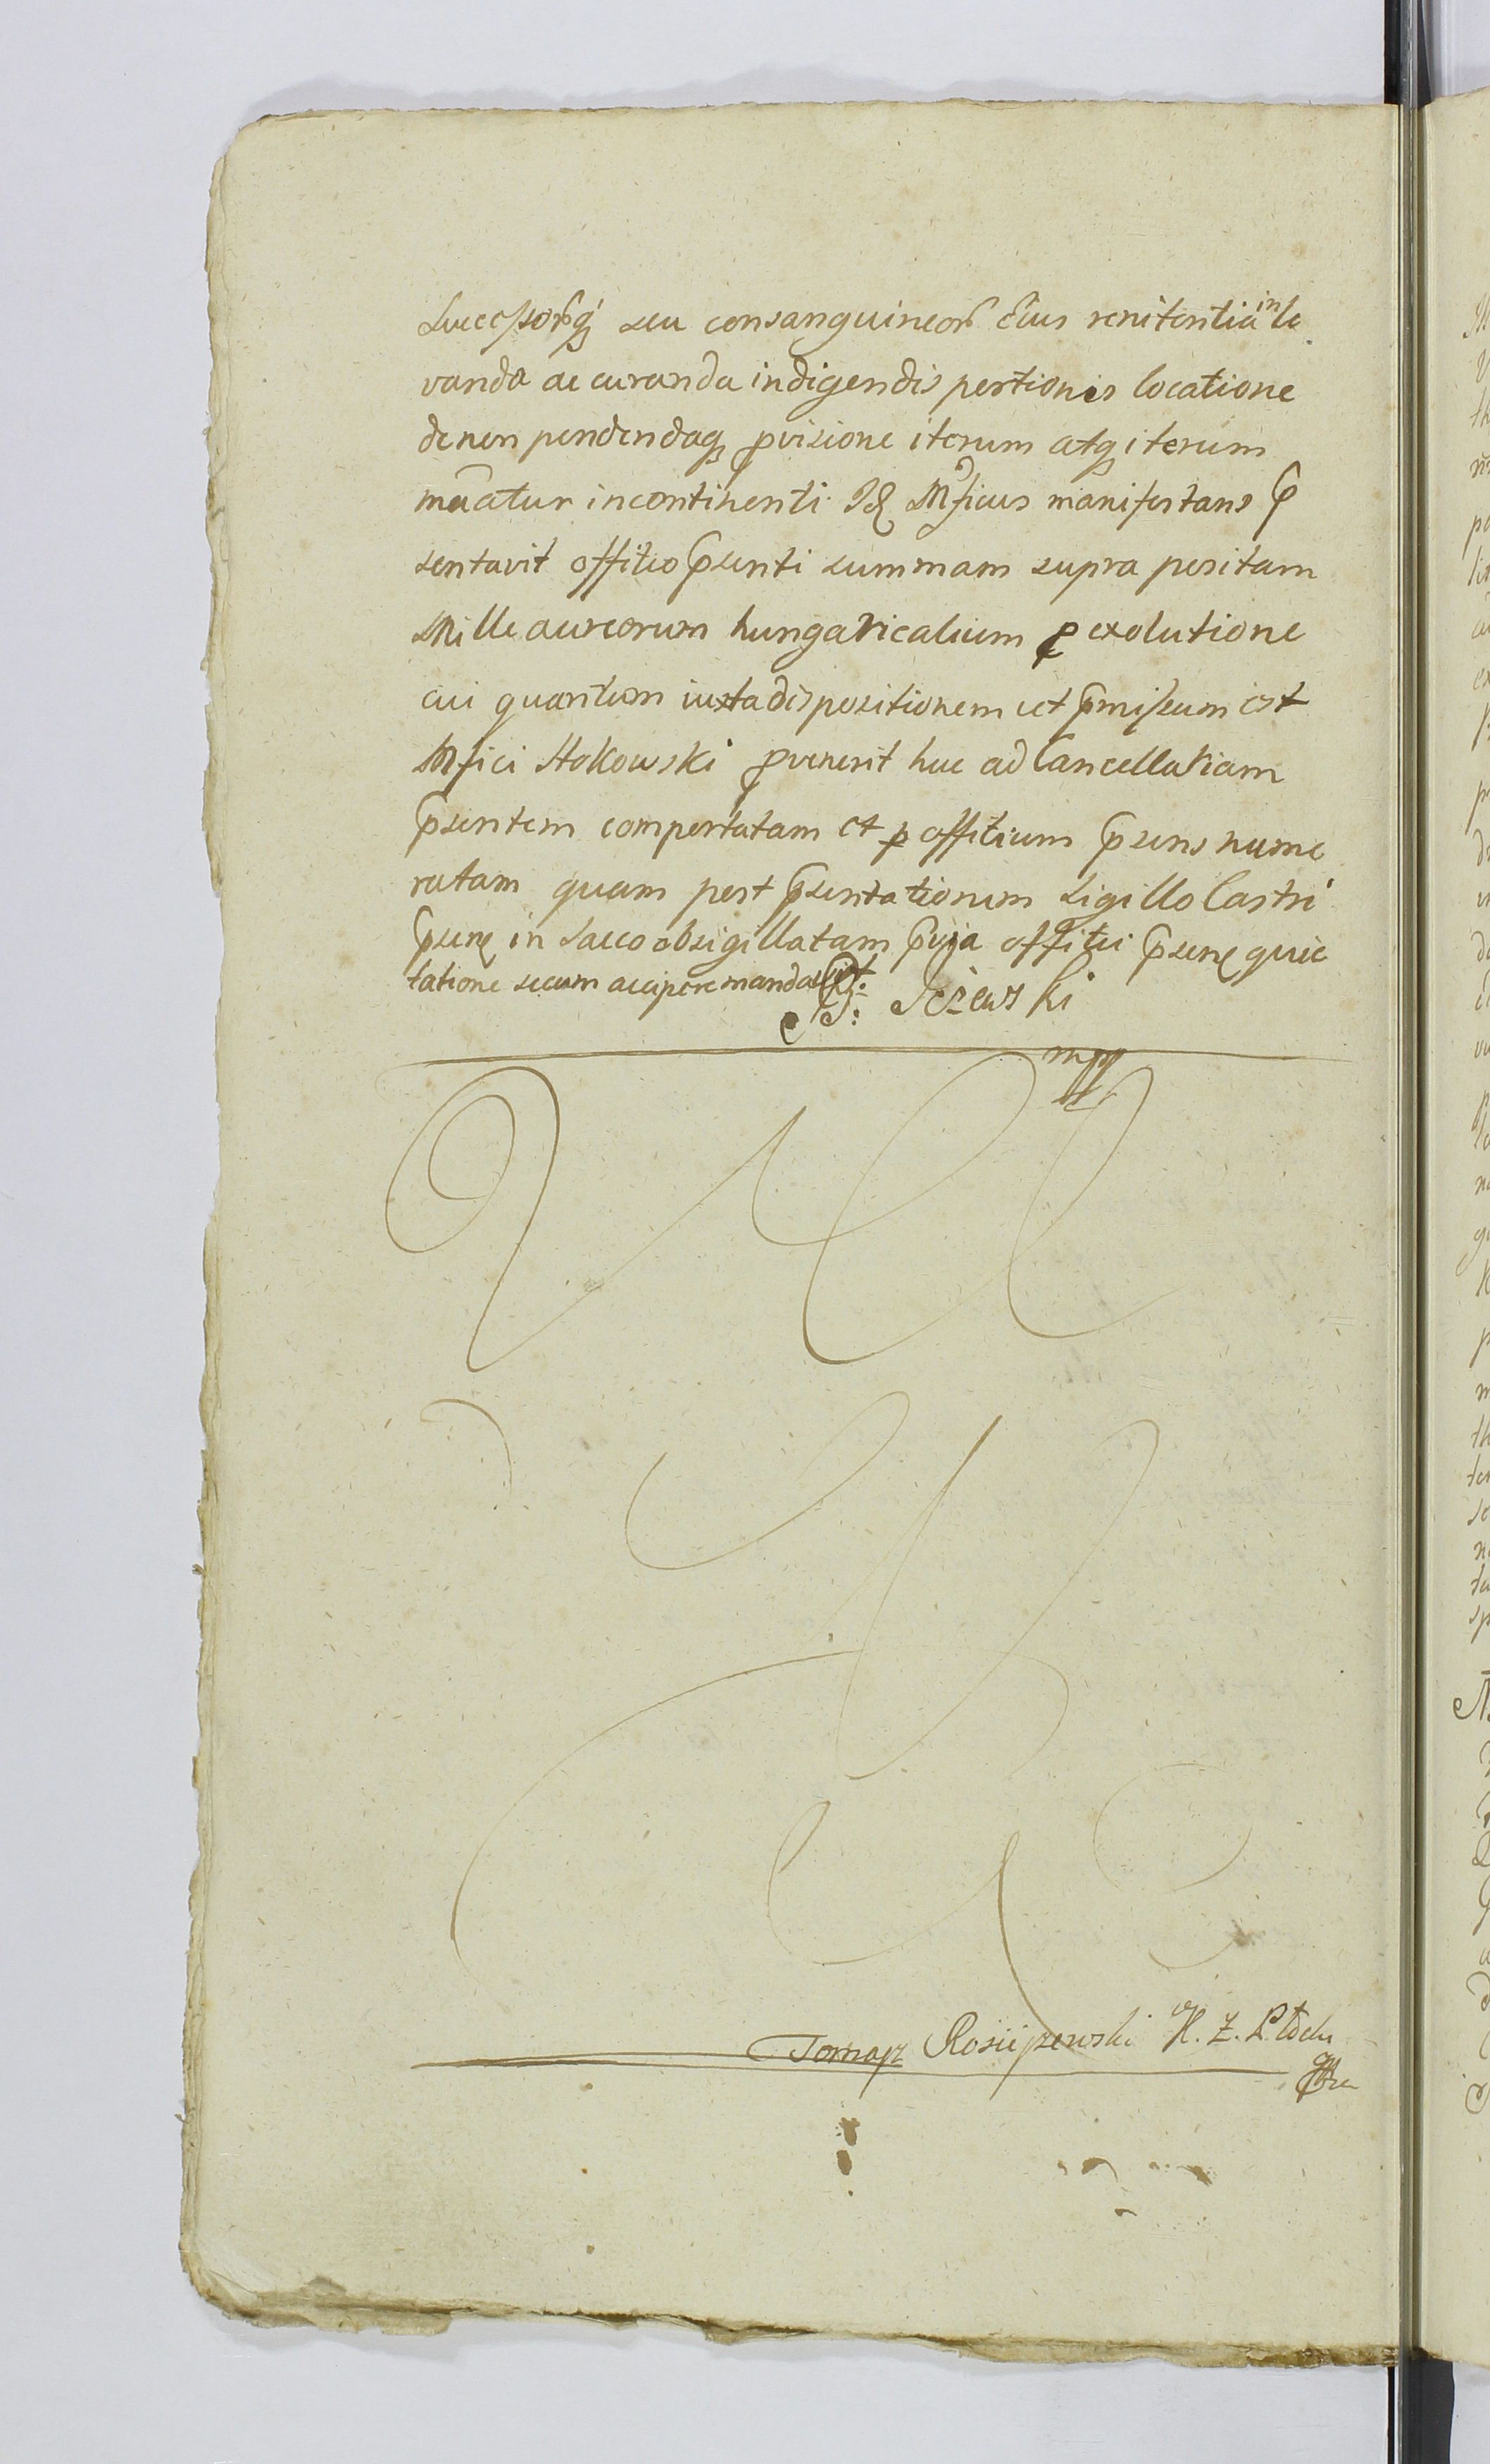 Successorq̃ seu consanguineor̃ Eius renitentia in le
vanda ac curanda indigendis portionis locatione
de non pendendaq provisione iterum atq iterum
manatur incontinenti. Id Mficus manifestans p̃
sentavit offitio p̃senti summam supra positam
Mille aureorum hungaricalium p exolutione
cui quantum iuxta dispositionem ut p̃missum est
Mfici Stokowski p̱venerit huc ad Cancellariam
p̃sentem comportatam et p offitium p̃sens nume
ratam quam post p̃sentationem sigillo Castri
p̃sen in sacco obsigillatam p̃via offitii p̃sen quie
tatione secum accipere mandavit.
J: Jeżewski
mpp
Tomasz Rosciszewski